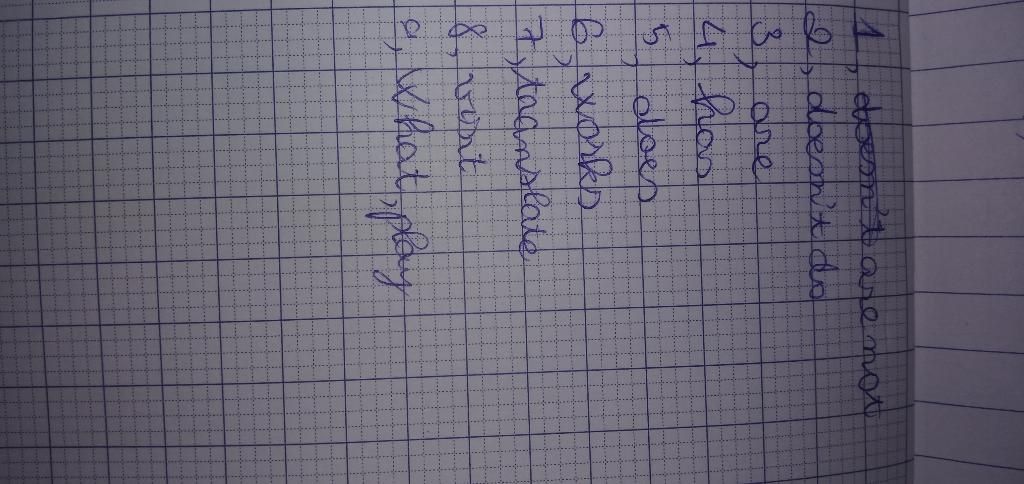 1, doesn't are not
2, doesn't do
3, are
4, has
5, does
6, works
7, translate
8,
9, What, play